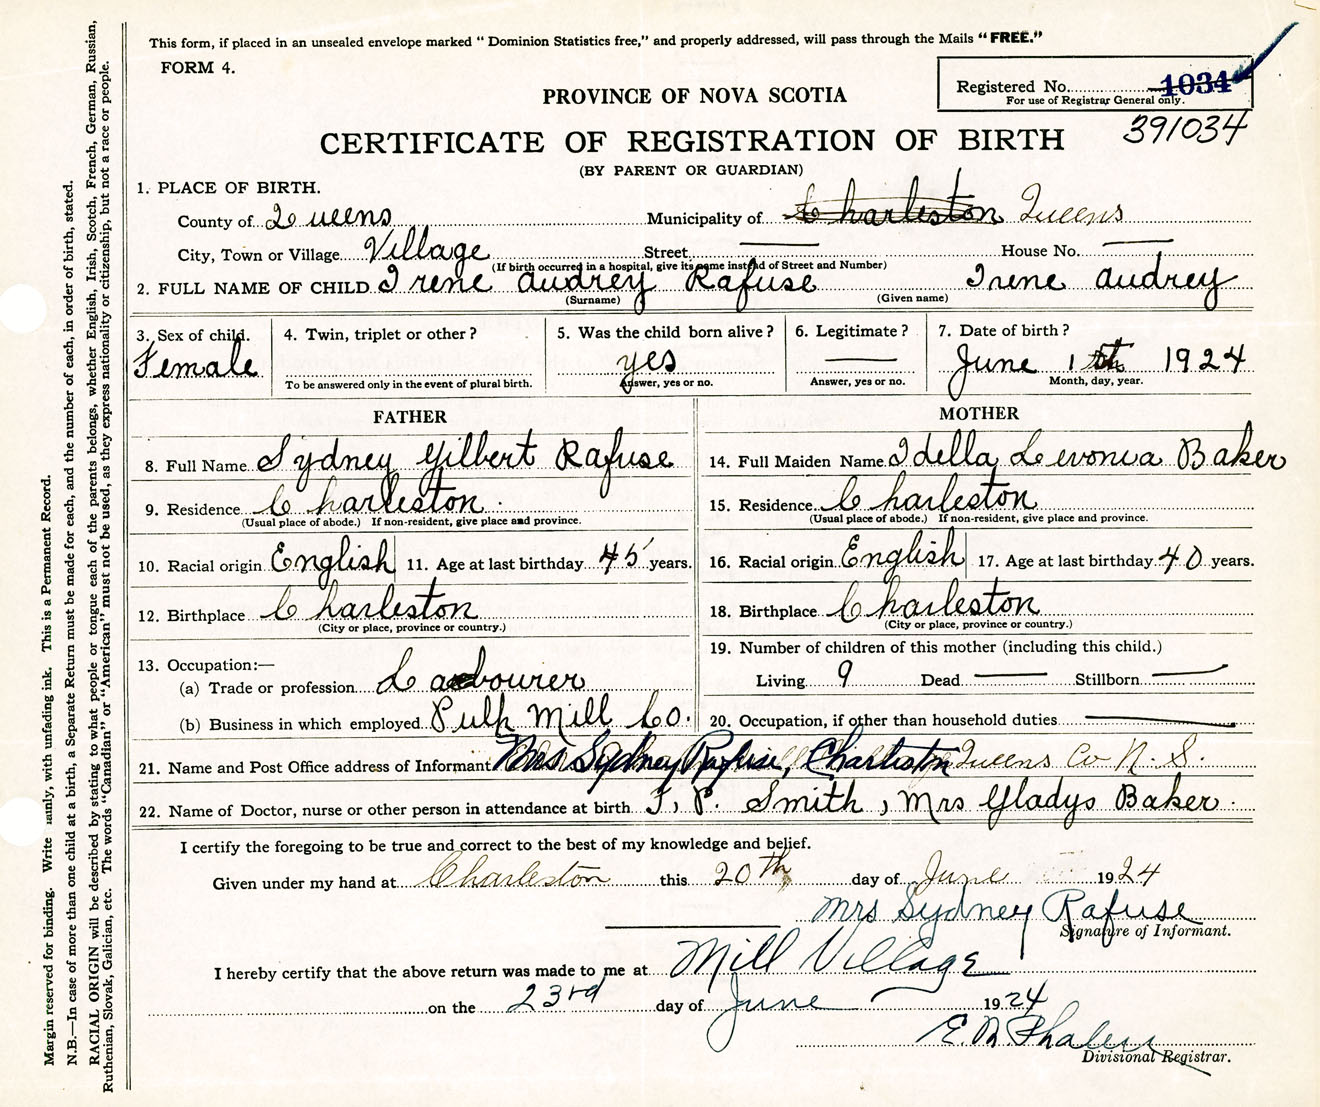 This form, if placed in an unsealed envelope marked " Dominion Statistics free," and properly addressed, will pass through the Mails "FREE."
FORM 4.
Registered No. 1034
For use of Registrar General only.
391034
PROVINCE OF NOVA SCOTIA
CERTIFICATE OF REGISTRATION OF BIRTH
(BY PARENT OR GUARDIAN)
1. PLACE OF BIRTH.
County of Queens Municipality of Charleston Queens
City, Town or Village Village Street House No.
(If birth occurred in a hospital, give its name instead of Street and Number)
2. FULL NAME OF CHILD Irene Audrey Rafuse Irene Audrey
(Surname) (Given name)
3. Sex of child. 4. Twin, triplet or other ? 5. Was the child born alive ? 6. Legitimate ? 7. Date of birth ?
Female yes June 1 1924
To be answered only in the event of plural birth. Answer, yes or no. Answer, yes or no. Month, day, year.
FATHER MOTHER
8. Full Name Sydney Gilbert Rafuse 14. Full Maiden Name Idella Levonia Baker
9. Residence Charleston 15. Residence Charleston
(Usual place of abode.) If non-resident, give place and province. (Usual place of abode.) If non-resident, give place and province.
10. Racial origin English 11. Age at last birthday 45 years. 16. Racial origin English 17. Age at last birthday 40 years.
12. Birthplace Charleston 18. Birthplace Charleston
(City or place, province or country.) (City or place, province or country.)
13. Occupation:— 19. Number of children of this mother (including this child.)
(a) Trade or profession Labourer Living 9 Dead Stillborn
(b) Business in which employed Pulp Mill Co. 20. Occupation, if other than household duties
21. Name and Post Office address of Informant Mrs Sydney Rafuse, Charleston Queens Co N. S.
22. Name of Doctor, nurse or other person in attendance at birth J. P. Smith, Mrs Gladys Baker.
I certify the foregoing to be true and correct to the best of my knowledge and belief.
Given under my hand at Charleston this 20th day of June 1924
Mrs Sydney Rafuse
Signature of Informant.
I hereby certify that the above return was made to me at Mill Village
on the 23rd day of June 1924
E. Phalen
Divisional Registrar.
Margin reserved for binding. Write ainly, with unfading ink. This is a Permanent Record.
N.B.—In case of more than one child at a birth, a Separate Return must be made for each, and the number of each, in order of birth, stated.
RACIAL ORIGIN will be described by stating to what people or tongue each of the parents belongs, whether English, Irish, Scotch, French, German, Russian,
Ruthenian, Slovak, Galician, etc. The words "Canadian" or "American" must not be used, as they express nationality or citizenship, but not a race or people.